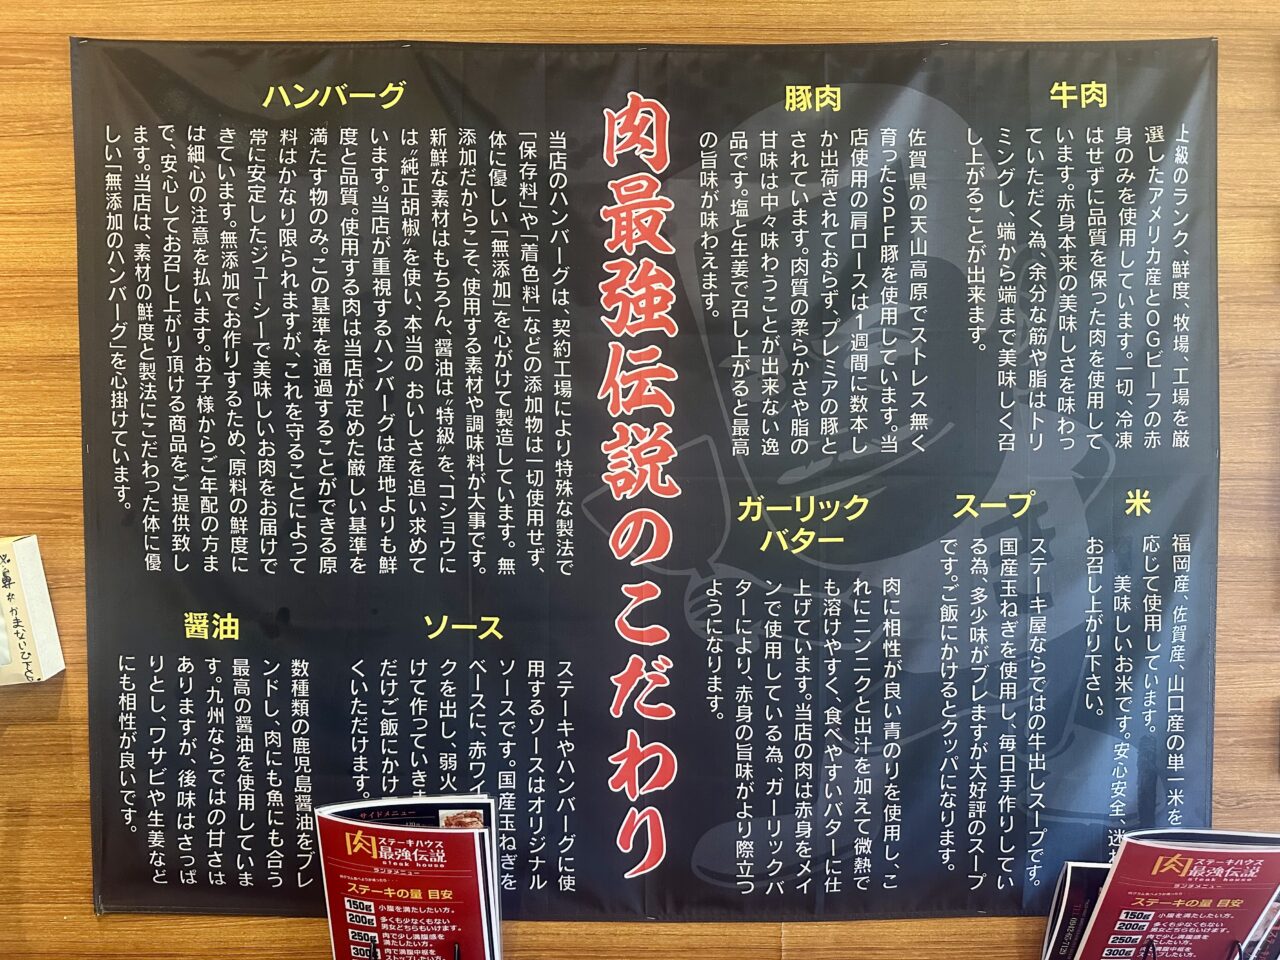 肉最強伝説のこだわり
牛肉
上級のランク、鮮度、牧場、工場を厳
選したアメリカ産とOGビーフの赤
身のみを使用しています。一切、冷凍
はせずに品質を保った肉を使用して
います。赤身本来の美味しさを味わっ
ていただく為、余分な筋や脂はトリ
ミングし、端から端まで美味しく召
し上がることが出来ます。
豚肉
佐賀県の天山高原でストレス無く
育ったSPF豚を使用しています。当
店使用の肩ロースは1週間に数本し
か出荷されておらず、プレミアの豚と
されています。肉質の柔らかさや脂の
甘味は中々味わうことが出来ない逸
品です。塩と生姜で召し上がると最高
の旨味が味わえます。
米
福岡産、佐賀産、山口産の単一米を
応じて使用しています。
美味しいお米です。安心安全、迷わ
お召し上がり下さい。
スープ
ステーキ屋ならではの牛出しスープです。
国産玉ねぎを使用し、毎日手作りしてい
る為、多少味がブレますが大好評のスープ
です。ご飯にかけるとクッパになります。
ガーリック
バター
肉に相性が良い青のりを使用し、こ
れにニンニクと出汁を加えて微熱で
も溶けやすく、食べやすいバターに仕
上げています。当店の肉は赤身をメイ
ンで使用している為、ガーリックバ
ターにより、赤身の旨味がより際立つ
ようになります。
ハンバーグ
当店のハンバーグは、契約工場により特殊な製法で
「保存料」や「着色料」などの添加物は一切使用せず、
体に優しい「無添加」を心がけて製造しています。無
添加だからこそ、使用する素材や調味料が大事です。
新鮮な素材はもちろん、醤油は"特級"を、コショウに
は"純正胡椒"を使い、本当の おいしさを追い求めて
います。当店が重視するハンバーグは産地よりも鮮
度と品質。使用する肉は当店が定めた厳しい基準を
満たす物のみ。この基準を通過することができる原
料はかなり限られますが、これを守ることによって
常に安定したジューシーで美味しいお肉をお届けで
きています。無添加でお作りするため、原料の鮮度に
は細心の注意を払います。お子様からご年配の方ま
で、安心してお召し上がり頂ける商品をご提供致し
ます。当店は、素材の鮮度と製法にこだわった体に優
しい「無添加のハンバーグ」を心掛けています。
ソース
ステーキやハンバーグに使
用するソースはオリジナル
ソースです。国産玉ねぎを
ベースに、赤ワイ
クを出し、弱火
けて作っていきま
だけご飯にかけ
くいただけます。
醤油
数種類の鹿児島醤油をブレ
ンドし、肉にも魚にも合う
最高の醤油を使用していま
す。九州ならではの甘さは
ありますが、後味はさっぱ
りとし、ワサビや生姜など
にも相性が良いです。
サイドメニュー
肉 ステーキハウス
最強伝説
steak house
ランチメニュー
ステーキの量 目安
150g 小腹を満たしたい方。
200g 多くも少なくもない
男女どちらもいけます。
250g 肉で少し満腹感を
満たしたい方。
300g 肉で満腹中枢を
ストップしたい方。
肉 ステーキハウス
最強伝説
steak house
ランチメニュー
ステーキの量 目安
150g 小腹を満たしたい方。
200g 多くも少なくもない
男女どちらもいけます。
250g 肉で少し満腹感を
満たしたい方。
300g 肉で満腹中枢を